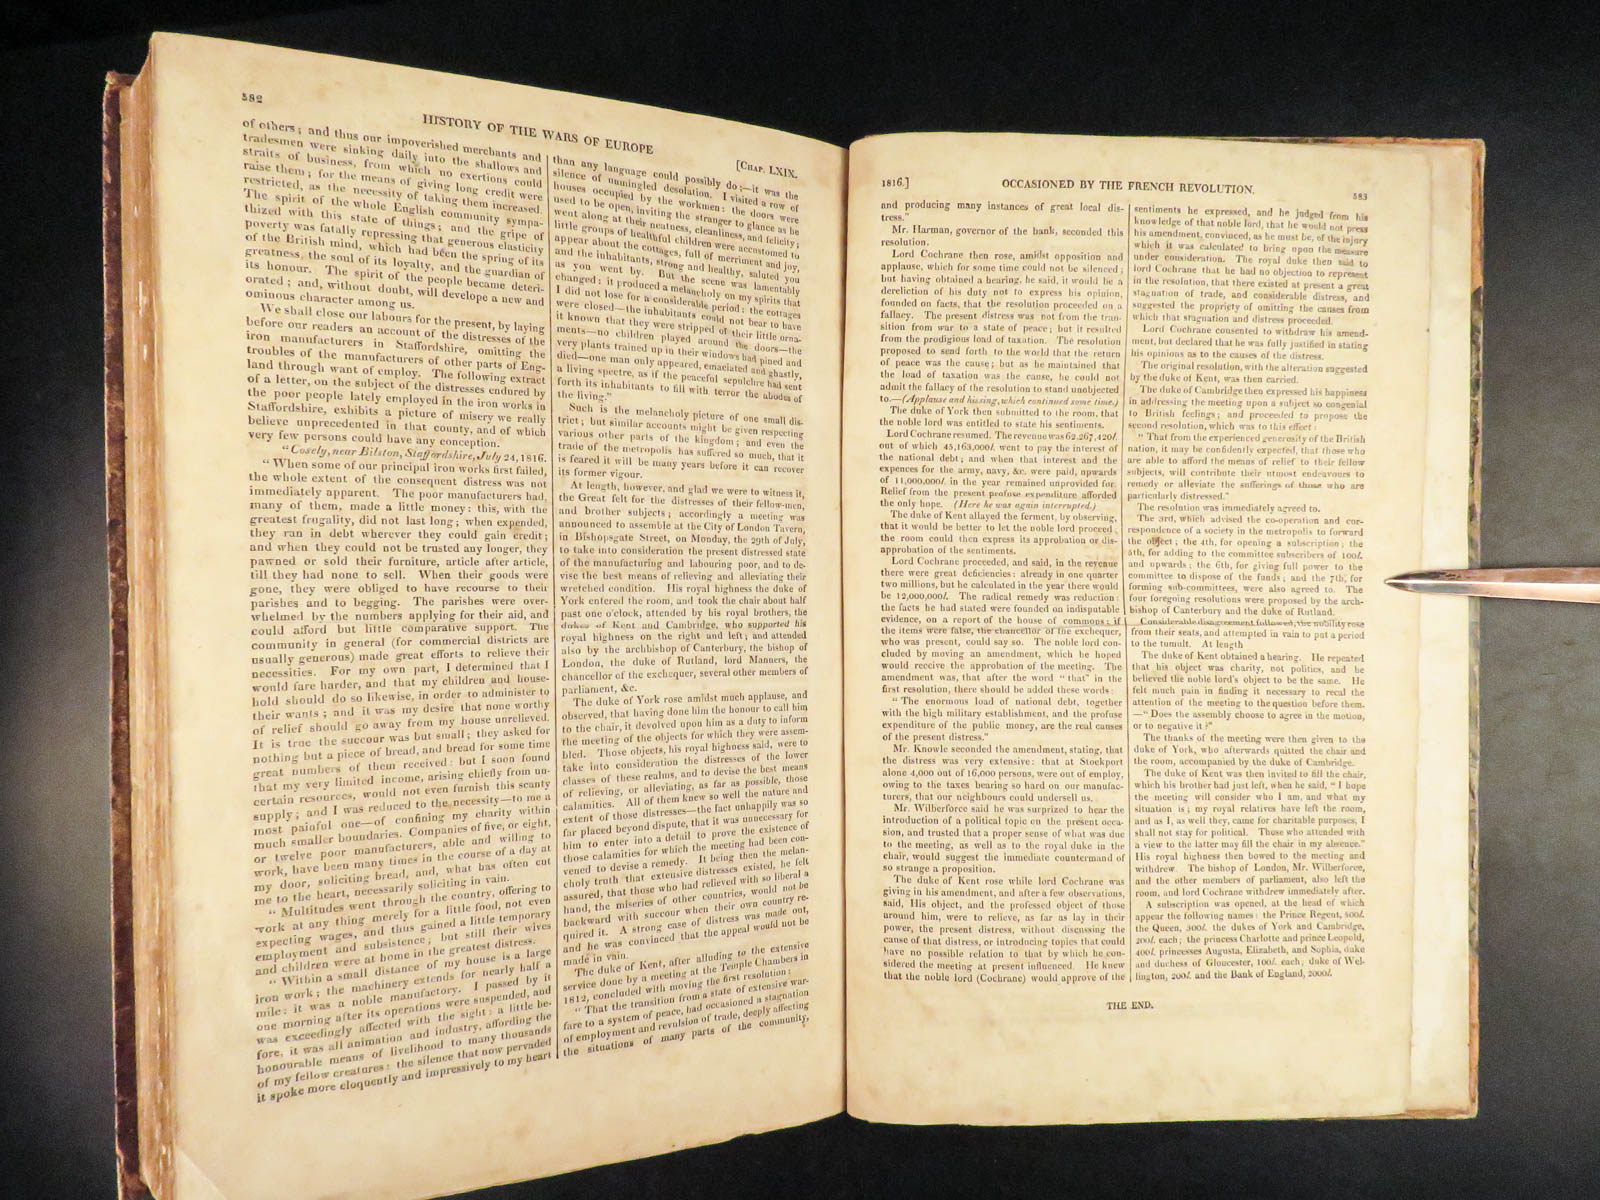 582
HISTORY OF THE WARS OF EUROPE
[Chap. LXIX.
of others; and thus our impoverished merchants and
tradesmen were sinking daily into the shallows and
straits of business, from which no exertions could
raise them; for the means of giving long credit were
restricted, as the necessity of taking them increased.
The spirit of the whole English community sympa-
thized with this state of things; and the gripe of
poverty was fatally repressing that generous elasticity
of the British mind, which had been the spring of its
greatness, the soul of its loyalty, and the guardian of
its honour. The spirit of the people became deteri-
orated; and, without doubt, will develope a new and
ominous character among us.
We shall close our labours for the present, by laying
before our readers an account of the distresses of the
iron manufacturers in Staffordshire, omitting the
troubles of the manufacturers of other parts of Eng-
land through want of employ. The following extract
of a letter, on the subject of the distresses endured by
the poor people lately employed in the iron works in
Staffordshire, exhibits a picture of misery we really
believe unprecedented in that county, and of which
very few persons could have any conception.
"Cosely, near Bilston, Staffordshire, July 24, 1816.
"When some of our principal iron works first failed,
the whole extent of the consequent distress was not
immediately apparent. The poor manufacturers had,
many of them, made a little money: this, with the
greatest frugality, did not last long; when expended,
they ran in debt wherever they could gain credit;
and when they could not be trusted any longer, they
pawned or sold their furniture, article after article,
till they had none to sell. When their goods were
gone, they were obliged to have recourse to their
parishes and to begging. The parishes were over-
whelmed by the numbers applying for their aid, and
could afford but little comparative support. The
community in general (for commercial districts are
usually generous) made great efforts to relieve their
necessities. For my own part, I determined that I
would fare harder, and that my children and house-
hold should do so likewise, in order to administer to
their wants; and it was my desire that none worthy
of relief should go away from my house unrelieved.
It is true the succour was but small; they asked for
nothing but a piece of bread, and bread for some time
great numbers of them received: but I soon found
that my very limited income, arising chiefly from un-
certain resources, would not even furnish this scanty
supply; and I was reduced to the necessity—to me a
most painful one—of confining my charity within
much smaller boundaries. Companies of five, or eight,
or twelve poor manufacturers, able and willing to
work, have been many times in the course of a day at
my door, soliciting bread, and, what has often cut
me to the heart, necessarily soliciting in vain.
"Multitudes went through the country, offering to
work at any thing merely for a little food, not even
expecting wages, and thus gained a little temporary
employment and subsistence; but still their wives
and children were at home in the greatest distress.
"Within a small distance of my house is a large
iron work; the machinery extends for nearly half a
mile: it was a noble manufactory. I passed by it
one morning after its operations were suspended, and
was exceedingly affected with the sight: a little be-
fore, it was all animation and industry, affording the
honourable means of livelihood to many thousands
of my fellow creatures: the silence that now pervaded
it spoke more eloquently and impressively to my heart
than any language could possibly do;—it was the
silence of unmingled desolation. I visited a row of
houses occupied by the workmen: the doors were
used to be open, inviting the stranger to glance as he
went along at their neatness, cleanliness, and felicity;
little groups of healthful children were accustomed to
appear about the cottages, full of merriment and joy,
and the inhabitants, strong and healthy, saluted you
as you went by. But the scene was lamentably
changed: it produced a melancholy on my spirits that
I did not lose for a considerable period: the cottages
were closed—the inhabitants could not bear to have
it known that they were stripped of their little orna-
ments—no children played around the doors—the
very plants trained up in their windows had pined and
died—one man only appeared, emaciated and ghastly,
a living spectre, as if the peaceful sepulchre had sent
forth its inhabitants to fill with terror the abodes of
the living."
Such is the melancholy picture of one small dis-
trict; but similar accounts might be given respecting
various other parts of the kingdom; and even the
trade of the metropolis has suffered so much, that it
is feared it will be many years before it can recover
its former vigour.
At length, however, and glad we were to witness it,
the Great felt for the distresses of their fellow-men,
and brother subjects; accordingly a meeting was
announced to assemble at the City of London Tavern,
in Bishopsgate Street, on Monday, the 29th of July,
to take into consideration the present distressed state
of the manufacturing and labouring poor, and to de-
vise the best means of relieving and alleviating their
wretched condition. His royal highness the duke of
York entered the room, and took the chair about half
past one o'clock, attended by his royal brothers, the
dukes of Kent and Cambridge, who supported his
royal highness on the right and left; and attended
also by the archbishop of Canterbury, the bishop of
London, the duke of Rutland, lord Manners, the
chancellor of the exchequer, several other members of
parliament, &c.
The duke of York rose amidst much applause, and
observed, that having done him the honour to call him
to the chair, it devolved upon him as a duty to inform
the meeting of the objects for which they were assem-
bled. Those objects, his royal highness said, were to
take into consideration the distresses of the lower
classes of these realms, and to devise the best means
of relieving, or alleviating, as far as possible, those
calamities. All of them knew so well the nature and
extent of those distresses—the fact unhappily was so
far placed beyond dispute, that it was unnecessary for
him to enter into a detail to prove the existence of
those calamities for which the meeting had been con-
vened to devise a remedy. It being then the melan-
choly truth that extensive distresses existed, he felt
assured, that those who had relieved with so liberal a
hand, the miseries of other countries, would not be
backward with succour when their own country re-
quired it. A strong case of distress was made out,
and he was convinced that the appeal would not be
made in vain.
The duke of Kent, after alluding to the extensive
service done by a meeting at the Temple Chambers in
1812, concluded with moving the first resolution:
"That the transition from a state of extensive war-
fare to a system of peace, had occasioned a stagnation
of employment and revulsion of trade, deeply affecting
the situations of many parts of the community,
1816.]
OCCASIONED BY THE FRENCH REVOLUTION.
583
and producing many instances of great local dis-
tress."
Mr. Harman, governor of the bank, seconded this
resolution.
Lord Cochrane then rose, amidst opposition and
applause, which for some time could not be silenced;
but having obtained a hearing, he said, it would be a
dereliction of his duty not to express his opinion,
founded on facts, that the resolution proceeded on a
fallacy. The present distress was not from the tran-
sition from war to a state of peace; but it resulted
from the prodigious load of taxation. The resolution
proposed to send forth to the world that the return
of peace was the cause; but as he maintained that
the load of taxation was the cause, he could not
admit the fallacy of the resolution to stand unobjected
to.—(Applause and hissing, which continued some time.)
The duke of York then submitted to the room, that
the noble lord was entitled to state his sentiments.
Lord Cochrane resumed. The revenue was 62,267,420l.
out of which 45,163,000l. went to pay the interest of
the national debt; and when that interest and the
expences for the army, navy, &c. were paid, upwards
of 11,000,000l. in the year remained unprovided for.
Relief from the present profuse expenditure afforded
the only hope. (Here he was again interrupted.)
The duke of Kent allayed the ferment, by observing,
that it would be better to let the noble lord proceed;
the room could then express its approbation or dis-
approbation of the sentiments.
Lord Cochrane proceeded, and said, in the revenue
there were great deficiencies: already in one quarter
two millions, but he calculated in the year there would
be 12,000,000l. The radical remedy was reduction:
the facts he had stated were founded on indisputable
evidence, on a report of the house of commons; if
the items were false, the chancellor of the exchequer,
who was present, could say so. The noble lord con-
cluded by moving an amendment, which he hoped
would receive the approbation of the meeting. The
amendment was, that after the word "that" in the
first resolution, there should be added these words:
"The enormous load of national debt, together
with the high military establishment, and the profuse
expenditure of the public money, are the real causes
of the present distress."
Mr. Knowle seconded the amendment, stating, that
the distress was very extensive: that at Stockport
alone 4,000 out of 16,000 persons, were out of employ,
owing to the taxes bearing so hard on our manufac-
turers, that our neighbours could undersell us.
Mr. Wilberforce said he was surprized to hear the
introduction of a political topic on the present occa-
sion, and trusted that a proper sense of what was due
to the meeting, as well as to the royal duke in the
chair, would suggest the immediate countermand of
so strange a proposition.
The duke of Kent rose while lord Cochrane was
giving in his amendment, and after a few observations,
said, His object, and the professed object of those
around him, were to relieve, as far as lay in their
power, the present distress, without discussing the
cause of that distress, or introducing topics that could
have no possible relation to that by which he con-
sidered the meeting at present influenced. He knew
that the noble lord (Cochrane) would approve of the
sentiments he expressed, and he judged from his
knowledge of that noble lord, that he would not press
his amendment, convinced, as he must be, of the injury
which it was calculated to bring upon the measure
under consideration. The royal duke then said to
lord Cochrane that he had no objection to represent
in the resolution, that there existed at present a great
stagnation of trade, and considerable distress, and
suggested the propriety of omitting the causes from
which that stagnation and distress proceeded.
Lord Cochrane consented to withdraw his amend-
ment, but declared that he was fully justified in stating
his opinions as to the causes of the distress.
The original resolution, with the alteration suggested
by the duke of Kent, was then carried.
The duke of Cambridge then expressed his happiness
in addressing the meeting upon a subject so congenial
to British feelings; and proceeded to propose the
second resolution, which was to this effect:
"That from the experienced generosity of the British
nation, it may be confidently expected, that those who
are able to afford the means of relief to their fellow
subjects, will contribute their utmost endeavours to
remedy or alleviate the sufferings of those who are
particularly distressed."
The resolution was immediately agreed to.
The 3rd, which advised the co-operation and cor-
respondence of a society in the metropolis to forward
the object; the 4th, for opening a subscription; the
5th, for adding to the committee subscribers of 100l.
and upwards; the 6th, for giving full power to the
committee to dispose of the funds; and the 7th, for
forming sub-committees, were also agreed to. The
four foregoing resolutions were proposed by the arch-
bishop of Canterbury and the duke of Rutland.
Considerable disagreement followed, the nobility rose
from their seats, and attempted in vain to put a period
to the tumult. At length
The duke of Kent obtained a hearing. He repeated
that his object was charity, not politics, and he
believed the noble lord's object to be the same. He
felt much pain in finding it necessary to recal the
attention of the meeting to the question before them.
—"Does the assembly choose to agree in the motion,
or to negative it?"
The thanks of the meeting were then given to the
duke of York, who afterwards quitted the chair and
the room, accompanied by the duke of Cambridge.
The duke of Kent was then invited to fill the chair,
which his brother had just left, when he said, "I hope
the meeting will consider who I am, and what my
situation is; my royal relatives have left the room,
and as I, as well they, came for charitable purposes, I
shall not stay for political. Those who attended with
a view to the latter may fill the chair in my absence."
His royal highness then bowed to the meeting and
withdrew. The bishop of London, Mr. Wilberforce,
and the other members of parliament, also left the
room, and lord Cochrane withdrew immediately after.
A subscription was opened, at the head of which
appear the following names: the Prince Regent, 500l.
the Queen, 300l. the dukes of York and Cambridge,
200l. each; the princess Charlotte and prince Leopold,
400l. princesses Augusta, Elizabeth, and Sophia, duke
and duchess of Gloucester, 100l. each; duke of Wel-
lington, 200l. and the Bank of England, 2000l.
THE END.